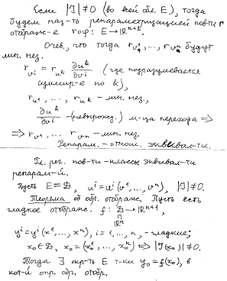 Если |J| ≠ 0 (во всей обл. E), тогда
будем наз-ть репараметризацией пов-ти
отображ-е r∘φ: E → ℝⁿ⁺¹.
Очев., что тогда r_v¹, ..., r_vⁿ будут
лин. нез.
r_vⁱ = r_uᵏ ∂uᵏ/∂vⁱ (где подразумевается
суммир-е по k),
r_u¹, ..., r_uⁿ - лин. нез.,
∂uᵏ/∂vⁱ - (невырожд.) м-ца перехода ⇒
⇒ r_v¹ ... r_vⁿ - лин. нез.
Репарам. - отнош. эквивал-ти.
рег. пов-ти - классы эквивал-ти
репарам-й.
Пусть E ≅ D, uⁱ = uⁱ(v¹, ..., vⁿ), |J| ≠ 0.
Теорема об обр. отображ. Пусть есть
гладкое отображ. f: D → ℝⁿ⁺¹,
ℝⁿ
yⁱ = yⁱ(x¹, ..., xⁿ), i = 1, ..., n, - гладкие;
x₀ ∈ D, x₀ = (x₀¹, ..., x₀ⁿ) ⇒ |J(x₀)| ≠ 0.
Тогда ∃ окр-ть E т-ки y₀ = f(x₀), в
кот-й опр. обр. отобр.